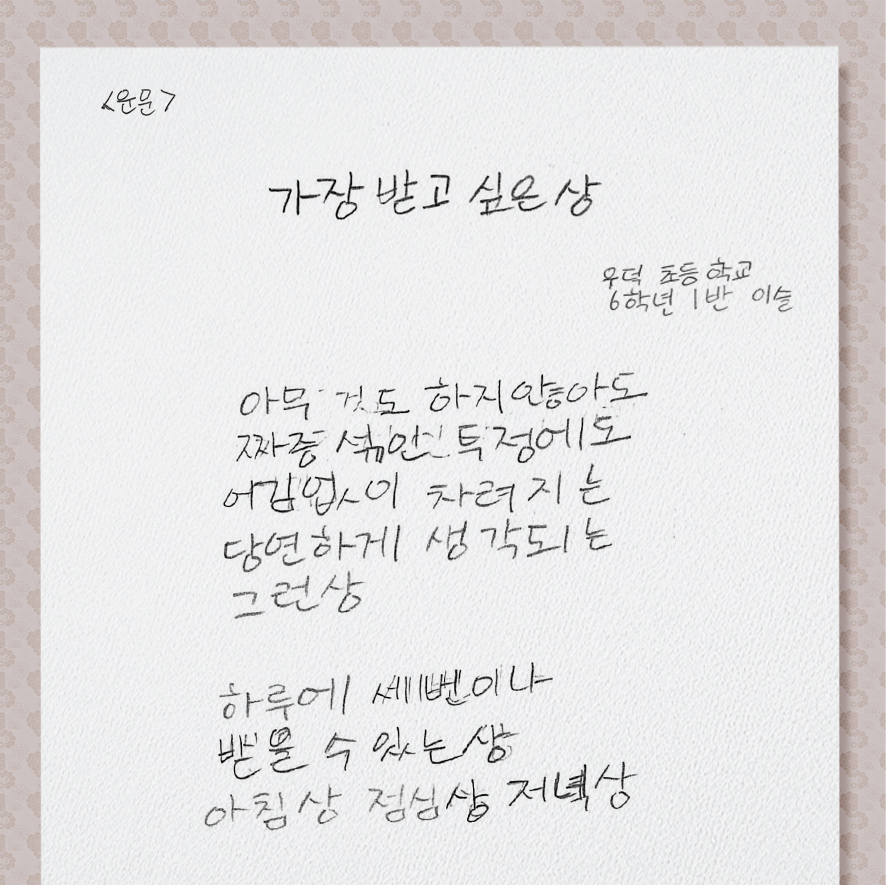 <운문>
가장 받고 싶은 상
우덕 초등학교
6학년 1반 이슬
아무 것도 하지 않아도
짜증 섞인 투정에도
어김없이 차려지는
당연하게 생각되는
그런 상
하루에 세 번이나
받을 수 있는 상
아침상 점심상 저녁상